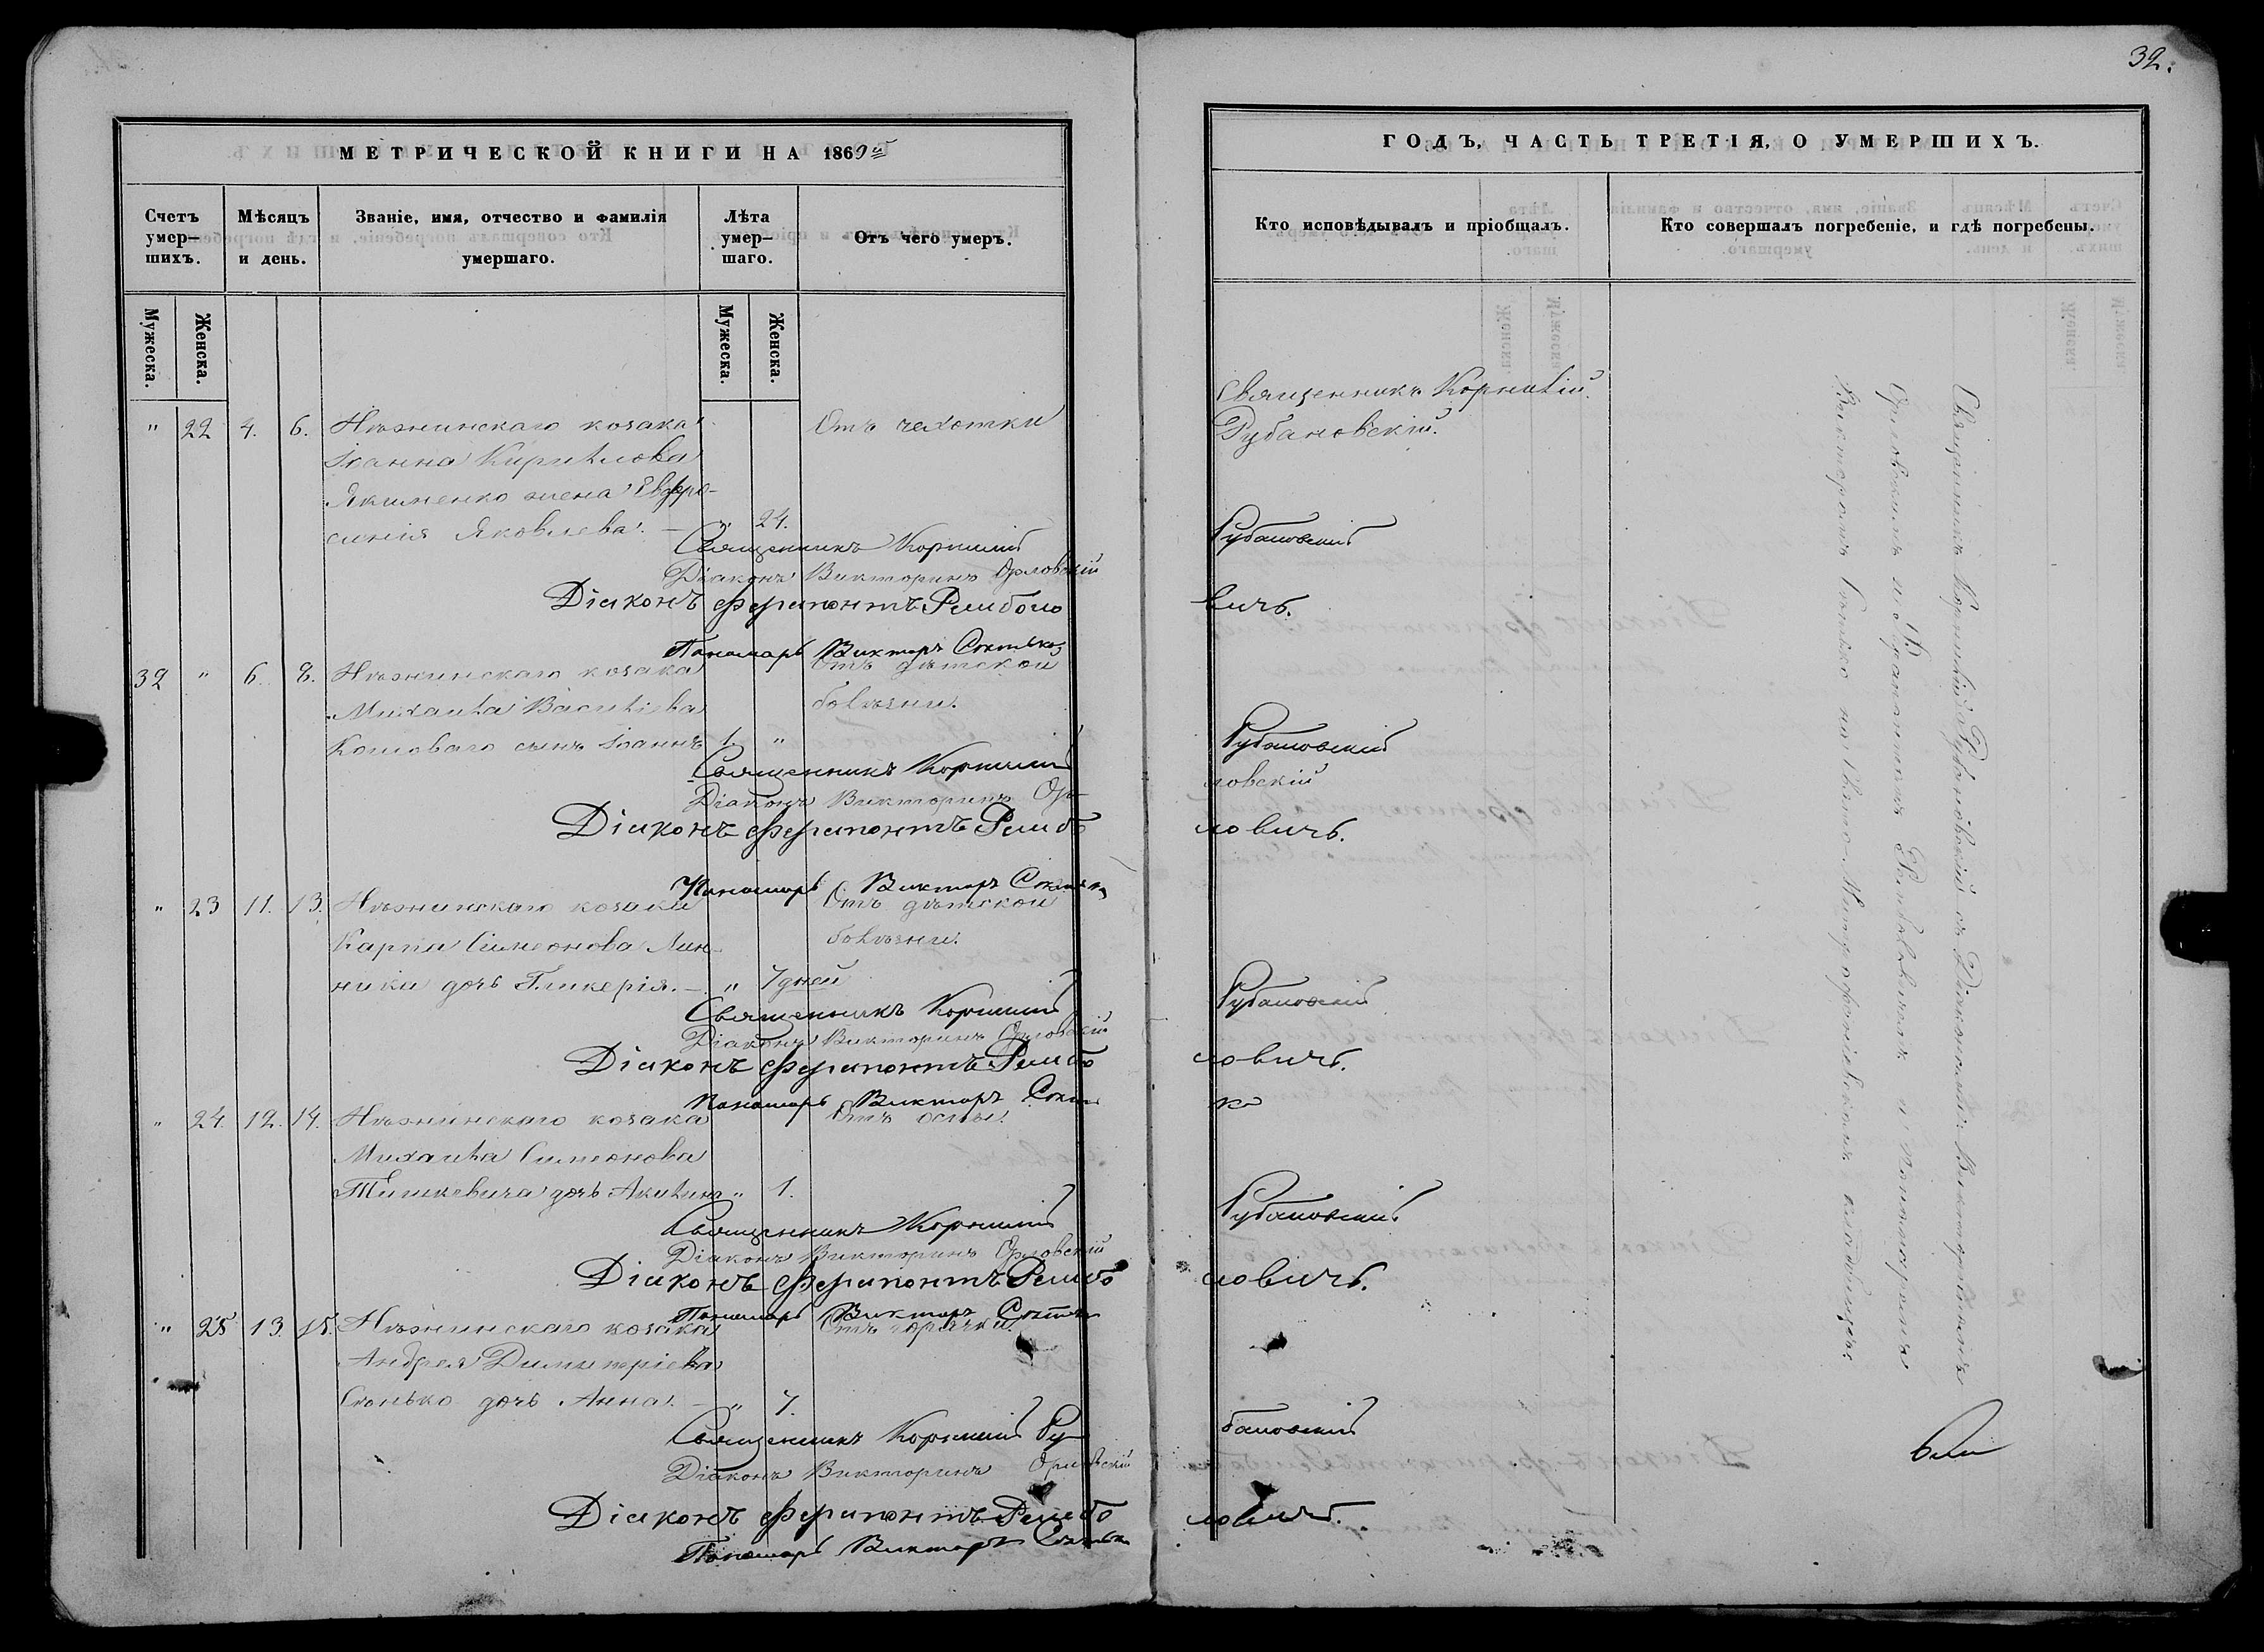 32.
МЕТРИЧЕСКОЙ КНИГИ НА 1869й
ГОДЪ, ЧАСТЬ ТРЕТІЯ, О УМЕРШИХЪ.
Счетъ умер—шихъ.
Мѣсяцъ и день.
Званіе, имя, отчество и фамилія умершаго.
Лѣта умер—шаго.
Отъ чего умеръ.
Кто исповѣдывалъ и пріобщалъ.
Кто совершалъ погребеніе, и гдѣ погребены.
Мужеска.
Женска.
Мужеска.
Женска.
" 22 4. 6. Нѣжинскаго козака Отъ чахотки
Іоанна Кирилова
Якименко жена Евфро-
синія Яковлева. — " 24.
Священникъ Корнилій
Рубановскій.
Священникъ Корнилій Рубановскій
Діаконъ Викторинъ Орловскій
Діаконъ Ферапонтъ Ремболо
вичъ.
Пономарь Викторъ
32 " 6. 8. Нѣжинскаго козака Отъ дѣтской
Михаила Василіева болѣзни.
Кошоваго сынъ Іоаннъ 1. "
Священникъ Корнилій Рубановскій
Діаконъ Викторинъ Ор-
ловскій
Діаконъ Ферапонтъ Рембо
ловичъ.
Пономарь Викторъ
" 23 11. 13. Нѣжинскаго козака Отъ дѣтской
Карпа Симеонова Лин- болѣзни.
ника дочь Гликерія. — " 7 дней
Священникъ Корнилій Рубановскій
Діаконъ Викторинъ Орловскій
Діаконъ Ферапонтъ Рембо
ловичъ.
Пономарь Викторъ
" 24. 12. 14. Нѣжинскаго козака Отъ оспы.
Михаила Симеонова
дочь Акилина " 1.
Священникъ Корнилій Рубановскій
Діаконъ Викторинъ Орловскій
Діаконъ Ферапонтъ Рембо
ловичъ.
Пономарь Викторъ
" 25 13. 15. Нѣжинскаго козака Отъ горячки.
Андрея Димитріева
дочь Анна. — " 7.
Священникъ Корнилій Ру
бановскій
Діаконъ Викторинъ Орловскій
Діаконъ Ферапонтъ Рембо
ловичъ.
Пономарь Викторъ
Священникъ Корнилій Рубановскій съ Діакономъ Викториномъ
Орловскимъ